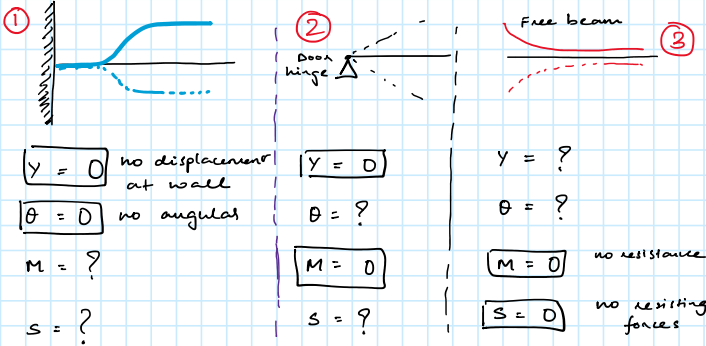 1
Y = 0 no displacement
at wall
θ = 0 no angular
M = ?
S = ?
2
Door
hinge
Y = 0
θ = ?
M = 0
S = ?
Free beam
3
Y = ?
θ = ?
M = 0 no resistance
S = 0 no resisting
forces